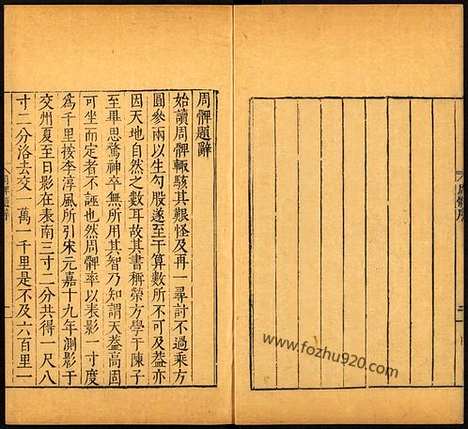 周髀題辭
始讀周髀輒駭其艱怪及再一尋討不過乘方
圓參兩以生勾股遂至于算數所不可及葢亦
因天地自然之數耳故其書稱榮方學于陳子
至畢思驚神卒無所用其智乃知謂天葢高固
可坐而定者不誣也然周髀率以表影一寸度
為千里按李淳風所引宋元嘉十九年測影于
交州夏至日影在表南三寸二分共得一尺八
寸二分洛去交一萬一千里是不及六百里一
www.fozhu920.com